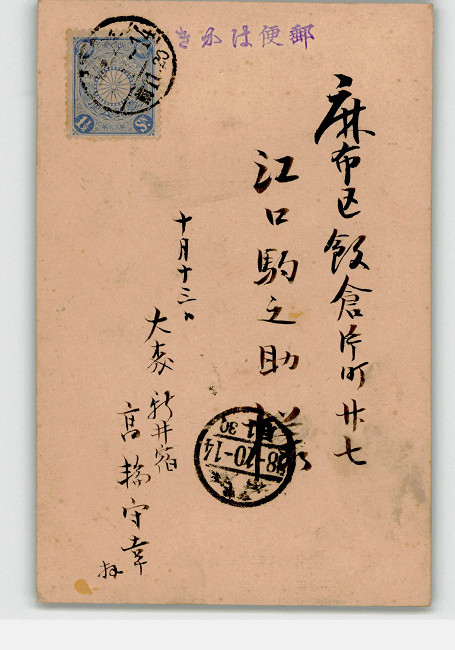 郵便はかき
麻布区飯倉片町廿七
江口駒之助様
十月十三日
大森新井宿
高橋守幸
38-10-14